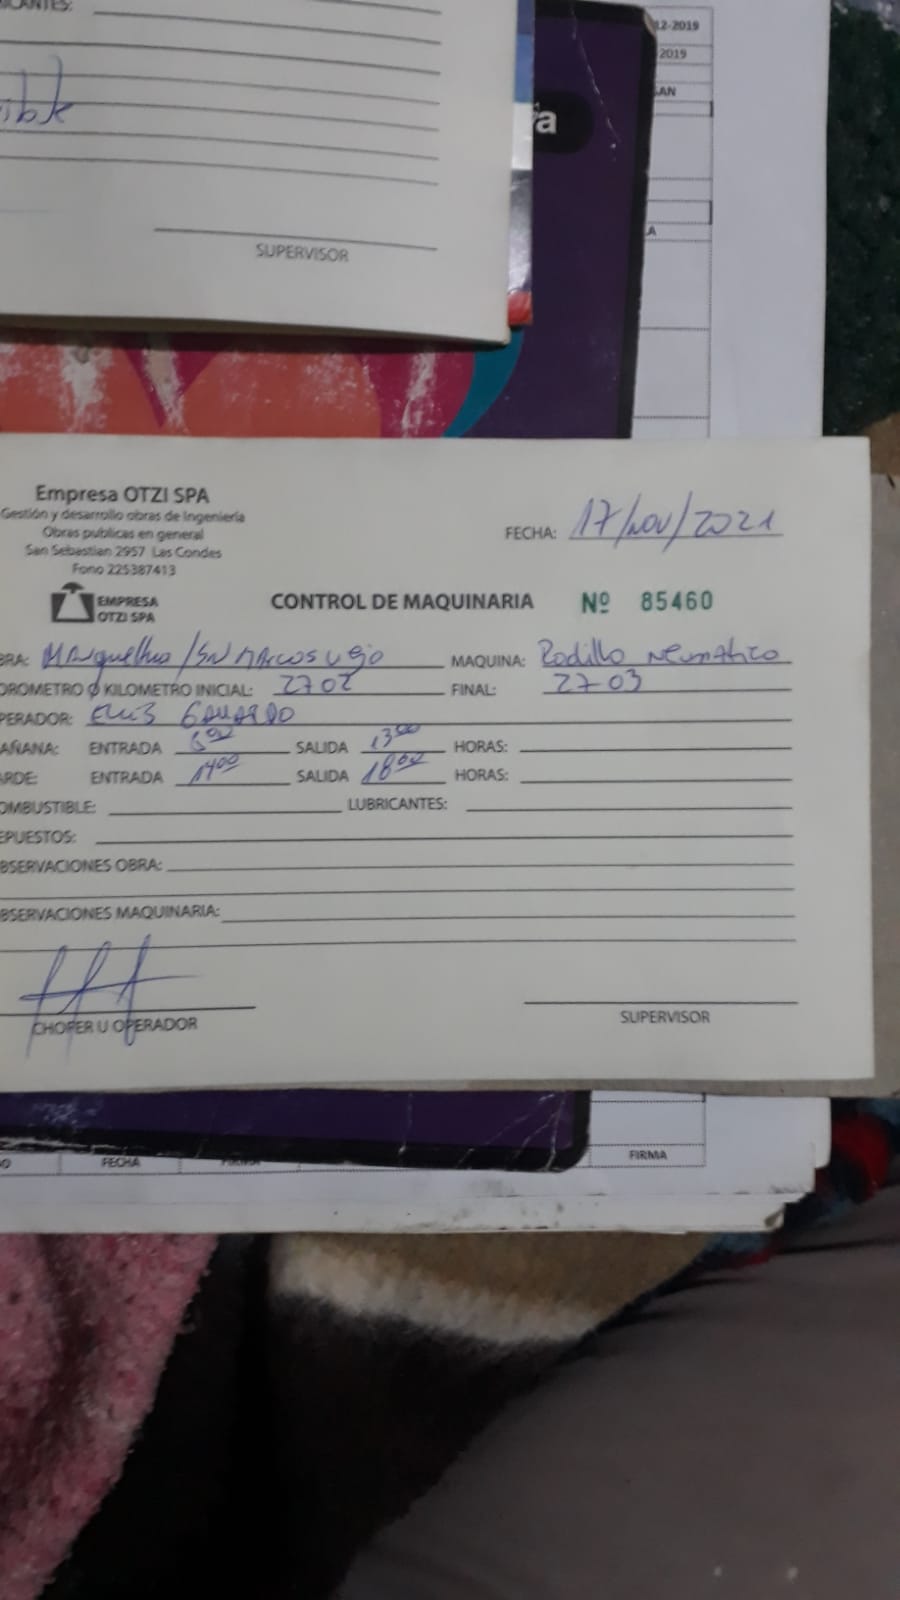 SUPERVISOR
12-2019
2019
Empresa OTZI SPA
Gestión y desarrollo obras de Ingeniería
Obras publicas en general
San Sebastian 2957 Las Condes
Fono 225387413
EMPRESA
OTZI SPA
FECHA: 17/NOV/2021
CONTROL DE MAQUINARIA Nº 85460
BRA: MAQUINA: Rodillo Neumático
OROMETRO O KILOMETRO INICIAL: 2702 FINAL: 2703
PERADOR: GALLARDO
AÑANA: ENTRADA SALIDA 13:00 HORAS:
ARDE: ENTRADA 14:00 SALIDA 18:00 HORAS:
OMBUSTIBLE: LUBRICANTES:
EPUESTOS:
BSERVACIONES OBRA:
BSERVACIONES MAQUINARIA:
CHOFER U OPERADOR SUPERVISOR
FECHA FIRMA FIRMA